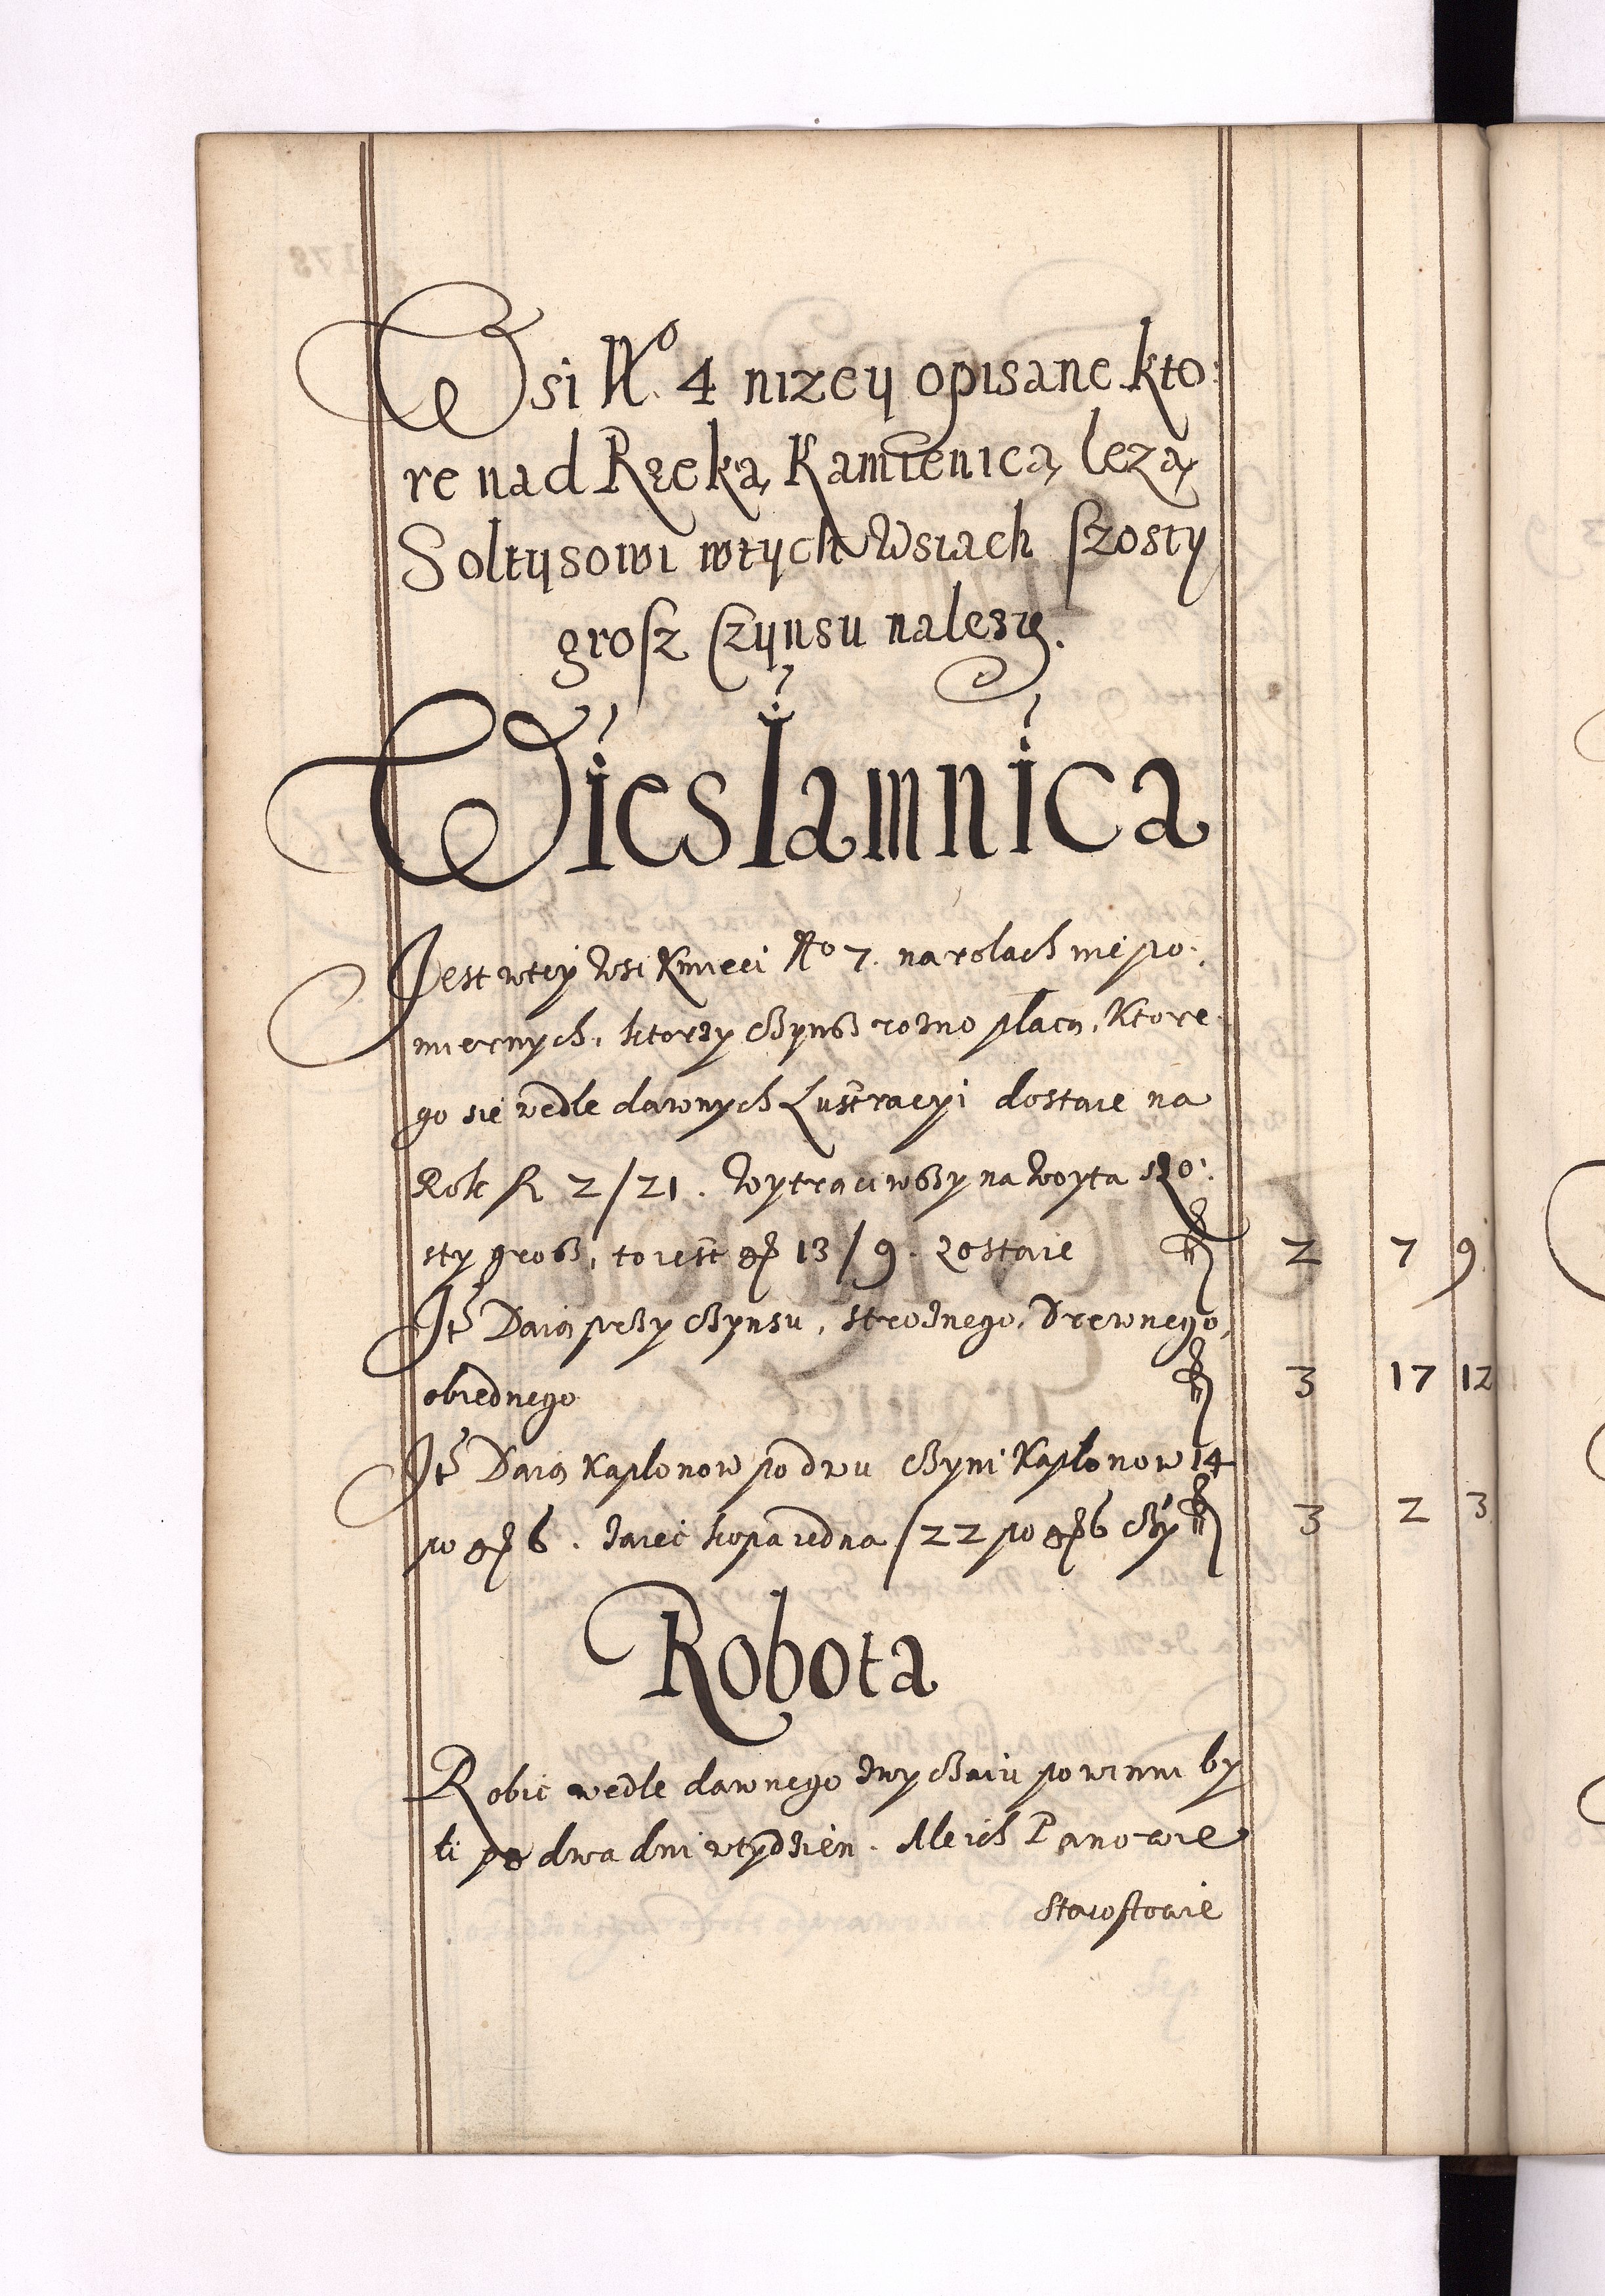 Wsi No 4 nizeÿ opisane kto:
re nad Rzeką Kamienicą lezą,
Soltÿsowi wtÿch Wsiach szosty
grosz Czÿnsu nalezÿ.
Wieslawnica
Jest wtey Wsi Kmieci No 7. na rolach niepo:
miernych, ktorzy Czynsz rozno płacą, Ktore
go sie wedle dawnych Lustracyi dostaie na
Rok fl 2/21. Wytraciwszy na Woyta szo:
sty grosz, to iest gr 13/9. Zostaie fl 2 7 9
Itē Daią przy Czynsu, Stroznego, Drewnego,
obiednego fl 3 17 12
Itē Daią Kapłonow po dwu Czyni Kapłonow 14
po gr 6. Iaiec kopa iedna /22 po gr 6 Czy fl 3 2 3
Robota
Robic wedle dawnego zwyczaiu powinni by
li po dwa dni wtydzien. Ale ich Panowie
Starostowie